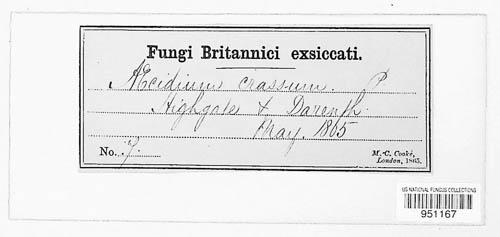 Fungi Britannici exsiccati.
Æcidium crassum. P
Highgate & Darenth.
May. 1865
No. 7.
M.C. Cooke,
London, 1865.
US NATIONAL FUNGUS COLLECTIONS
951167